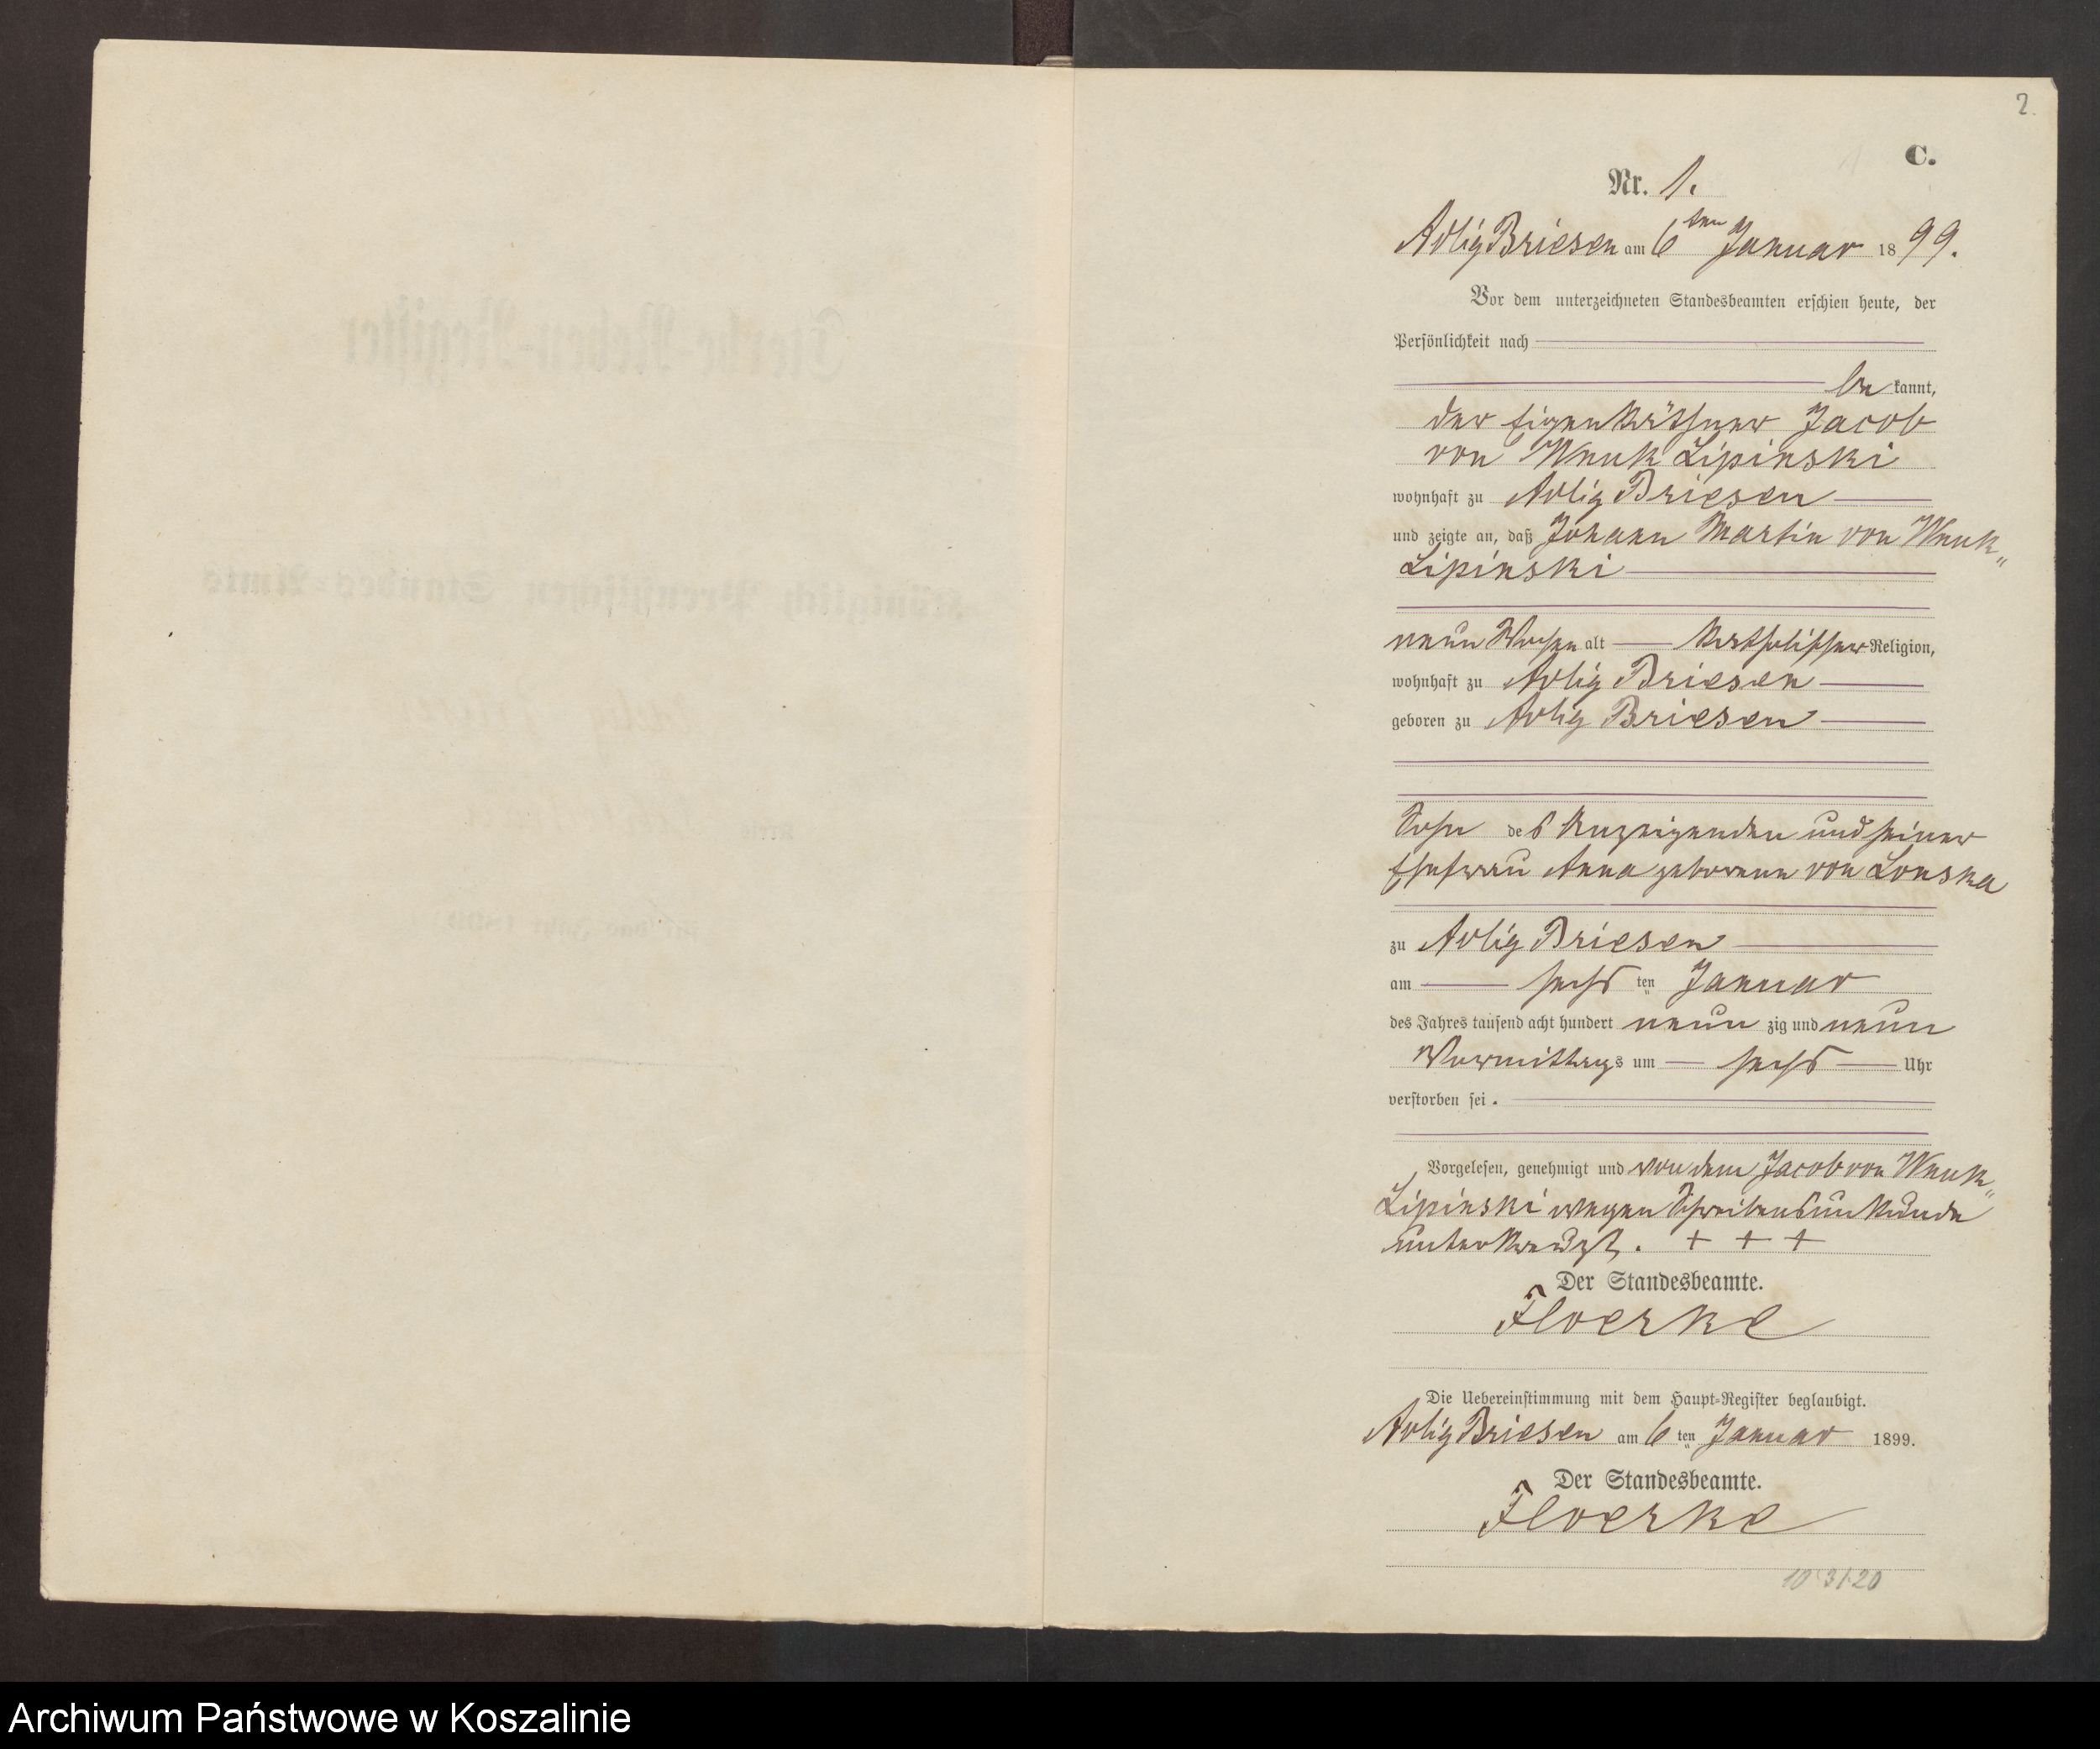 2.
C.
Nr. 1.
Adlig Briesen am 6ten Januar 1899.
Vor dem unterzeichneten Standesbeamten erschien heute, der
Persönlichkeit nach
bekannt,
der Eigenkäthner Jacob
von Wnuk Lipinski
wohnhaft zu Adlig Briesen
und zeigte an, daß Johann Martin von Wnuk„
Lipinski
neun Wochen alt katholischer Religion,
wohnhaft zu Adlig Briesen
geboren zu Adlig Briesen
Sohn des Anzeigenden und seiner
Ehefrau Anna geborenen von Lonska
zu Adlig Briesen
am sechsten Januar
des Jahres tausend acht hundert neunzig und neun
Vormittags um sechs Uhr
verstorben sei.
Vorgelesen, genehmigt und von dem Jacob von Wnuk„
Lipinski wegen Schreibensunkunde
unterkreuzt. + + +
Der Standesbeamte.
Floerke
Die Uebereinstimmung mit dem Haupt-Register beglaubigt.
Adlig Briesen am 6ten Januar 1899.
Der Standesbeamte.
Floerke
Archiwum Państwowe w Koszalinie